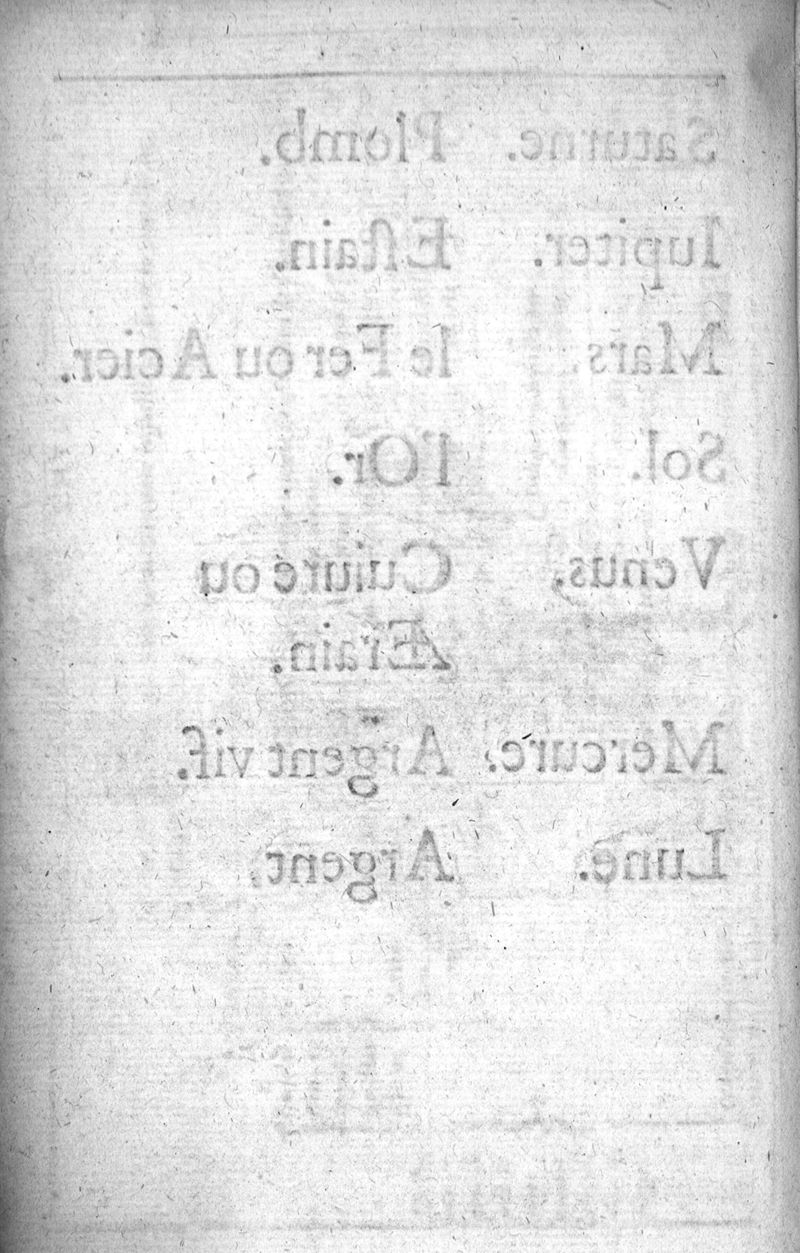 Saturne. Plomb.
Iupiter. Eſtain.
Mars. le Fer ou Acier.
Sol. l'Or.
Venus, Cuiure ou
Ærain.
Mercure. Argent vif.
Lune. Argent.